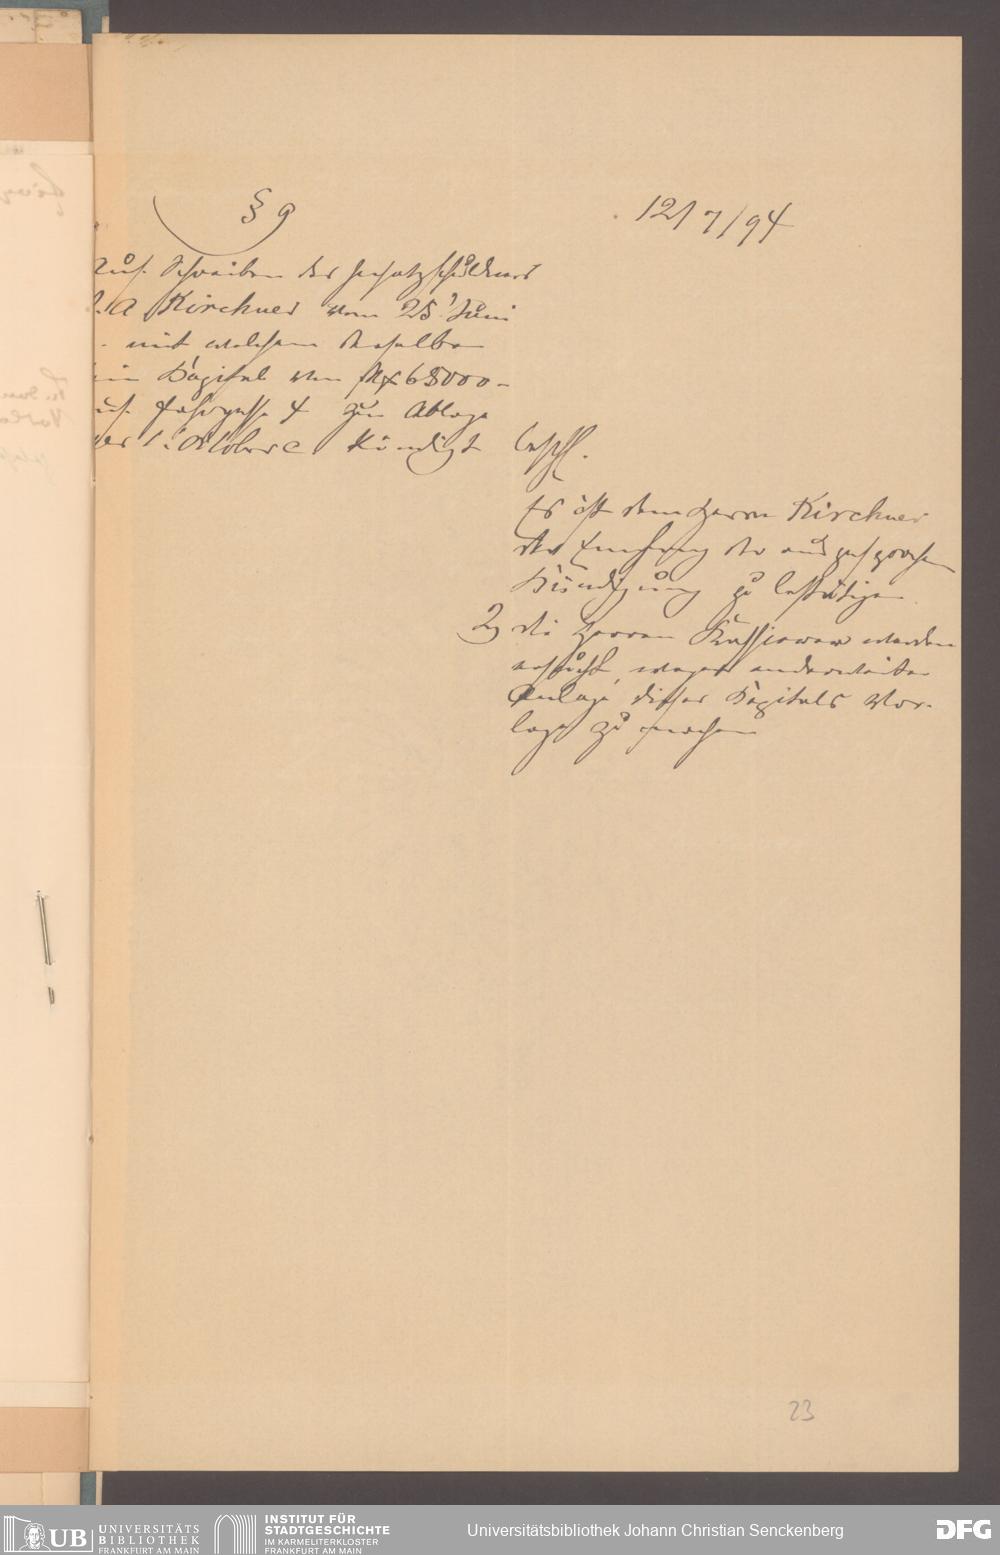 § 9
12/7/94
Auf Schreiben des Insatzschuldners
A Kirchner vom 25. Juni
mit welchem derselbe
ein Kapital von Mk 68000-
auf Fahrgasse 4 zur Ablage
per 1. Oktober c kündigt
beschl.
Es ist dem Herrn Kirchner
der Empfang der ausgesprochenen
Kündigung zu bestätigen.
2) die Herren Kassierer werden
ersucht, wegen anderweiter
Anlage dieses Kapitals Vor-
lage zu machen
23
UB UNIVERSITÄTS
BIBLIOTHEK
FRANKFURT AM MAIN
INSTITUT FÜR
STADTGESCHICHTE
IM KARMELITERKLOSTER
FRANKFURT AM MAIN
Universitätsbibliothek Johann Christian Senckenberg
DFG